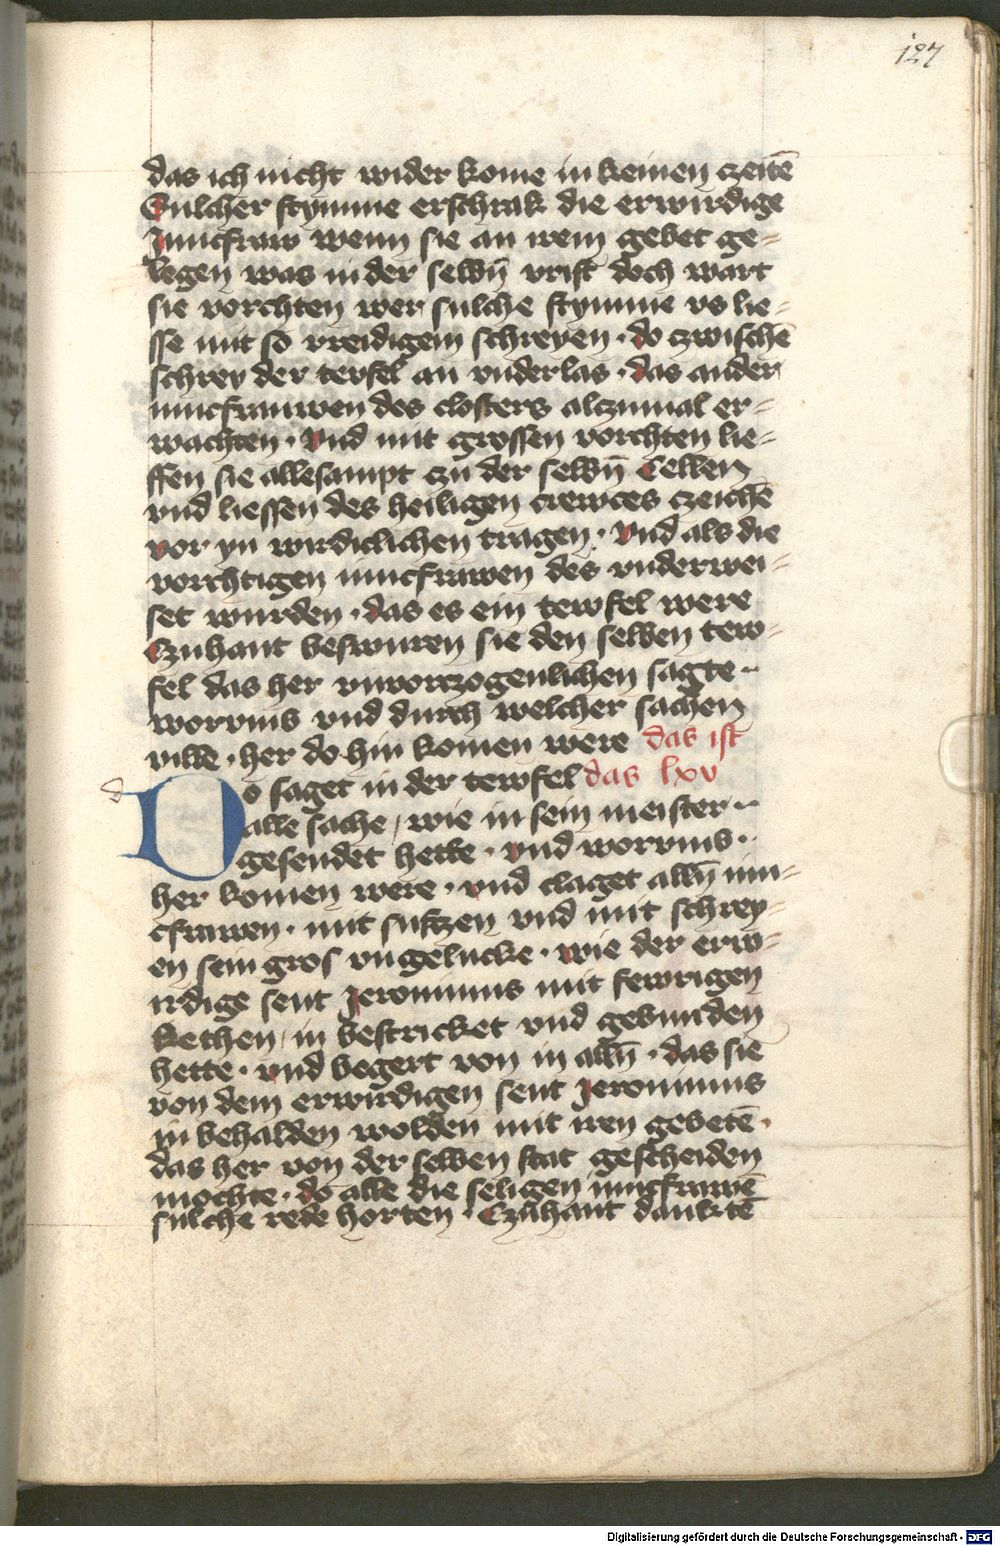 127
das ich nicht wider kome in keinen czeitē
Sulcher stymme erschrak die erwirdige
Juncfraw wenn sie an irem gebet ge-
legen was in der selbñ vrist doch wart
sie vorchten wer sulche stymme vs lie-
sse mit so vreidigem schreyen · do czwischē
schrey der tewfel an vnderlas · das ander
iuncfrauwen des closters alczumal er-
wachten · vnd mit grossen vorchten lie-
ffen sie allesampt czu der selbñ Cellen
vnd liessen des heiligen crewces czeichē
vor yn wirdiclichen tragen · vnd als die
vorchtigen iuncfrawen des vnderwei-
set wurden · das es ein tewfel were
Czuhant beswuren sie den selben tew-
fel das her vnvorczogenlichen sagte
worvms vnd durch welcher sachen
wille · her do hin komen were das ist
Do saget in der tewfel das lxv
alle sache / wie in sein meister
gesendet hette · vnd worvms
her komen were · vnd claget allñ iun-
cfrawen · mit suftzen vnd mit schrey-
en sein gros vngelucke · wie der erw-
irdige sent Jeronimus mit fewrigen
kethen / in bestricket vnd gebunden
hette · vnd begert von in allñ · das sie
von dem erwirdigen sent Jeronimus
in behalden wolden mit iren gebetē ·
das her von der selben stat gescheiden
mochte · do alle die seligen iuncfrawē
sulche rede horten · Czuhant danktē
Digitalisierung gefördert durch die Deutsche Forschungsgemeinschaft - DFG